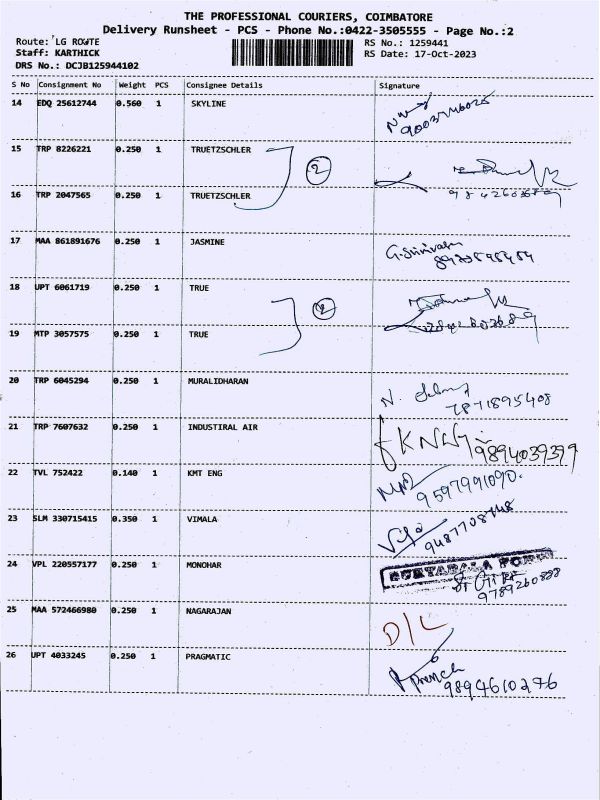 THE PROFESSIONAL COURIERS, COIMBATORE
Delivery Runsheet - PCS - Phone No.:0422-3505555 - Page No.:2
Route: LG ROUTE
RS No.: 1259441
Staff: KARTHICK
RS Date: 17-Oct-2023
DRS No.: DCJB125944102
S No Consignment No Weight PCS Consignee Details Signature
14 EDQ 25612744 0.560 1 SKYLINE
15 TRP 8226221 0.250 1 TRUETZSCHLER
2
16 TRP 2047565 0.250 1 TRUETZSCHLER 9842603689
17 MAA 861891676 0.250 1 JASMINE G.Srinivasan
18 UPT 6061719 0.250 1 TRUE
2
19 MTP 3057575 0.250 1 TRUE
20 TRP 6045294 0.250 1 MURALIDHARAN 7871895408
21 TRP 7607632 0.250 1 INDUSTIRAL AIR 9894039379
22 TVL 752422 0.140 1 KMT ENG 9597991090.
23 SLM 330715415 0.350 1 VIMALA 9487708748
24 VPL 220557177 0.250 1 MONOHAR 9789260888
25 MAA 572466980 0.250 1 NAGARAJAN D/L
26 UPT 4033245 0.250 1 PRAGMATIC 9894610276